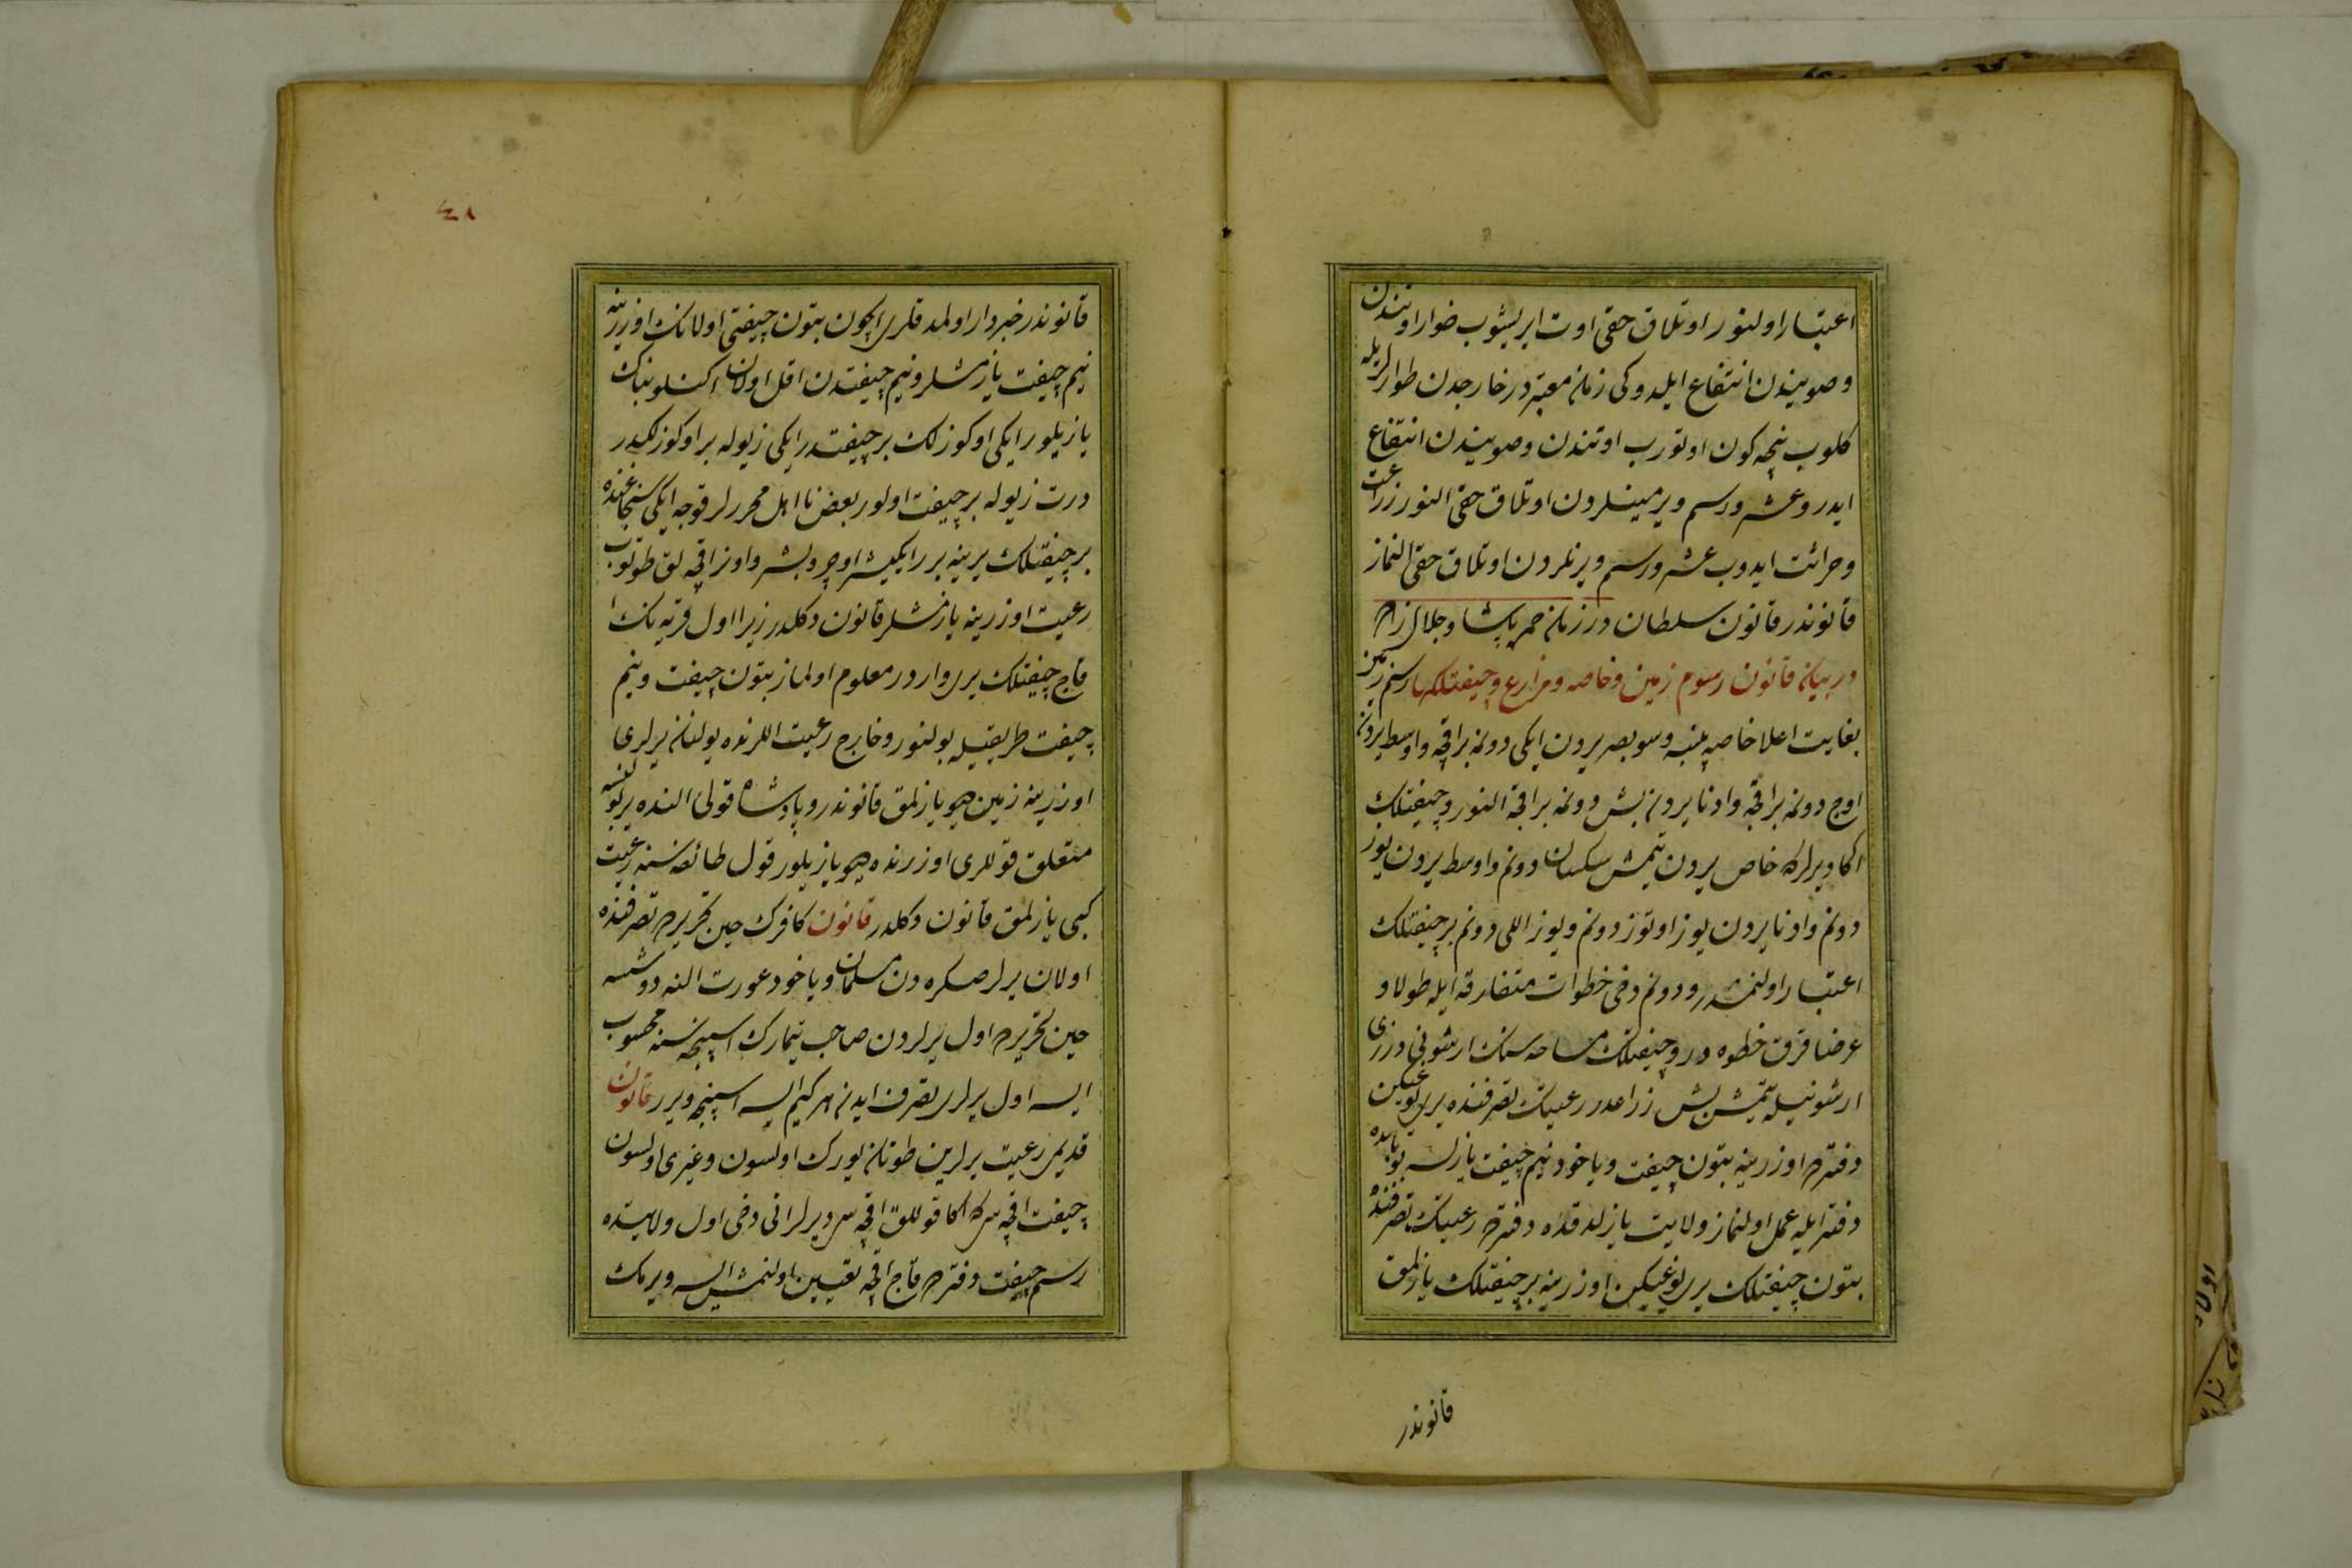 اعتبار اولنور اوتلاق حقی اوت ایریشوب طوار اوتندن
وصویندن انتفاع ایلدوکی زمانه معتبردر خارجدن طوارلریله
کلوب نیچه کون اوتورب اوتندن وصویندن انتفاع
ایدر وعشر ورسم ویرمینلردن اوتلاق حقی النور زراعت
وحراثت ایدوب عشر ورسم ویرنلردن اوتلاق حقی النماز
قانوندر قانون سلطان در زمان پاشا وجلال زاده
در بیان قانون رسوم زمین وخاصه ومزارع وچیفتلکها رسم زمین
بغایت اعلا خاصیه پنبه وسوبصر یردن ایکی دونمه بر اقچه واوسط یردن
اوچ دونمه بر اقچه وادنا یردن بش دونمه بر اقچه النور وچیفتلک
اکا دیرلرکه خاص یردن یتمش سکسان دونم واوسط یردن یوز
دونم وادنا یردن یوز اوتوز دونم ویوز اللی دونم بر چیفتلک
اعتبار اولنمشدر ودونم دخی خطوات متفارقه ایله طولا و
عرضا قرق خطوه در وچیفتلک مساحه سنک ارشونی درزی
ارشونیله یتمش بش زراعدر رعیتک تصرفنده یری یوغیکین
دفترده اوزرینه بتون چیفت ویاخود نیم چیفت یازلسه بو بابده
دفتر ایله عمل اولنماز ولایت یازلدقده دفترده رعیتک تصرفنده
بتون چیفتلک یری یوغیکین اوزرینه بر چیفتلک یازلمق
قانوندر
٤٨
قانوندر خبردار اولمدقلری ایچون بتون چیفتی اولانک اوزرینه
نیم چیفت یازمشلر ونیم چیفتدن اقل اولان اکنلو بناک
یازیلور ایکی اوکوزلک بر چیفتدر ایکی زیوله بر اوکوزلکدر
درت زیوله بر چیفت اولور بعض نا اهل محررلر قوجه ایکی سنجاغنده
بر چیفتلک یرینه برر ایکیشر اوچر وبشر واونر اقچه لق طوتوب
رعیت اوزرینه یازمشلر قانون دکلدر زیرا اول قریه نک
قاچ چیفتلک یری واردر معلوم اولماز بتون چیفت ونیم
چیفت طریقیله بولنور وخارج رعیت اللرنده بولنان یرلری
اوزرینه زمین دیو یازلمق قانوندر وپادشاه قولی النده یر بولنسه
متعلق قوللری اوزرنده دیو یازیلور قول طائفه سنه رعیت
کبی یازلمق قانون دکلدر قانون کافرک حین تحریرده تصرفنده
اولان یرلر صکره دن مسلمان ویاخود عورت النه دوشسه
حین تحریرده اول یرلردن صاحب تیمارک اسپنجه سنه محسوب
ایسه اول یرلری تصرف ایدن هر کیم ایسه اسپنجه ویرر قانون
قدیمی رعیت یرلرین طوتان یورک اولسون وغیری اولسون
چیفت اقچه سی که اکا قوللق اقچه سی دیرلر انی دخی اول ولایتده
رسم چیفت دفترده قاچ اقچه تعیین اولنمش ایسه ویرمک